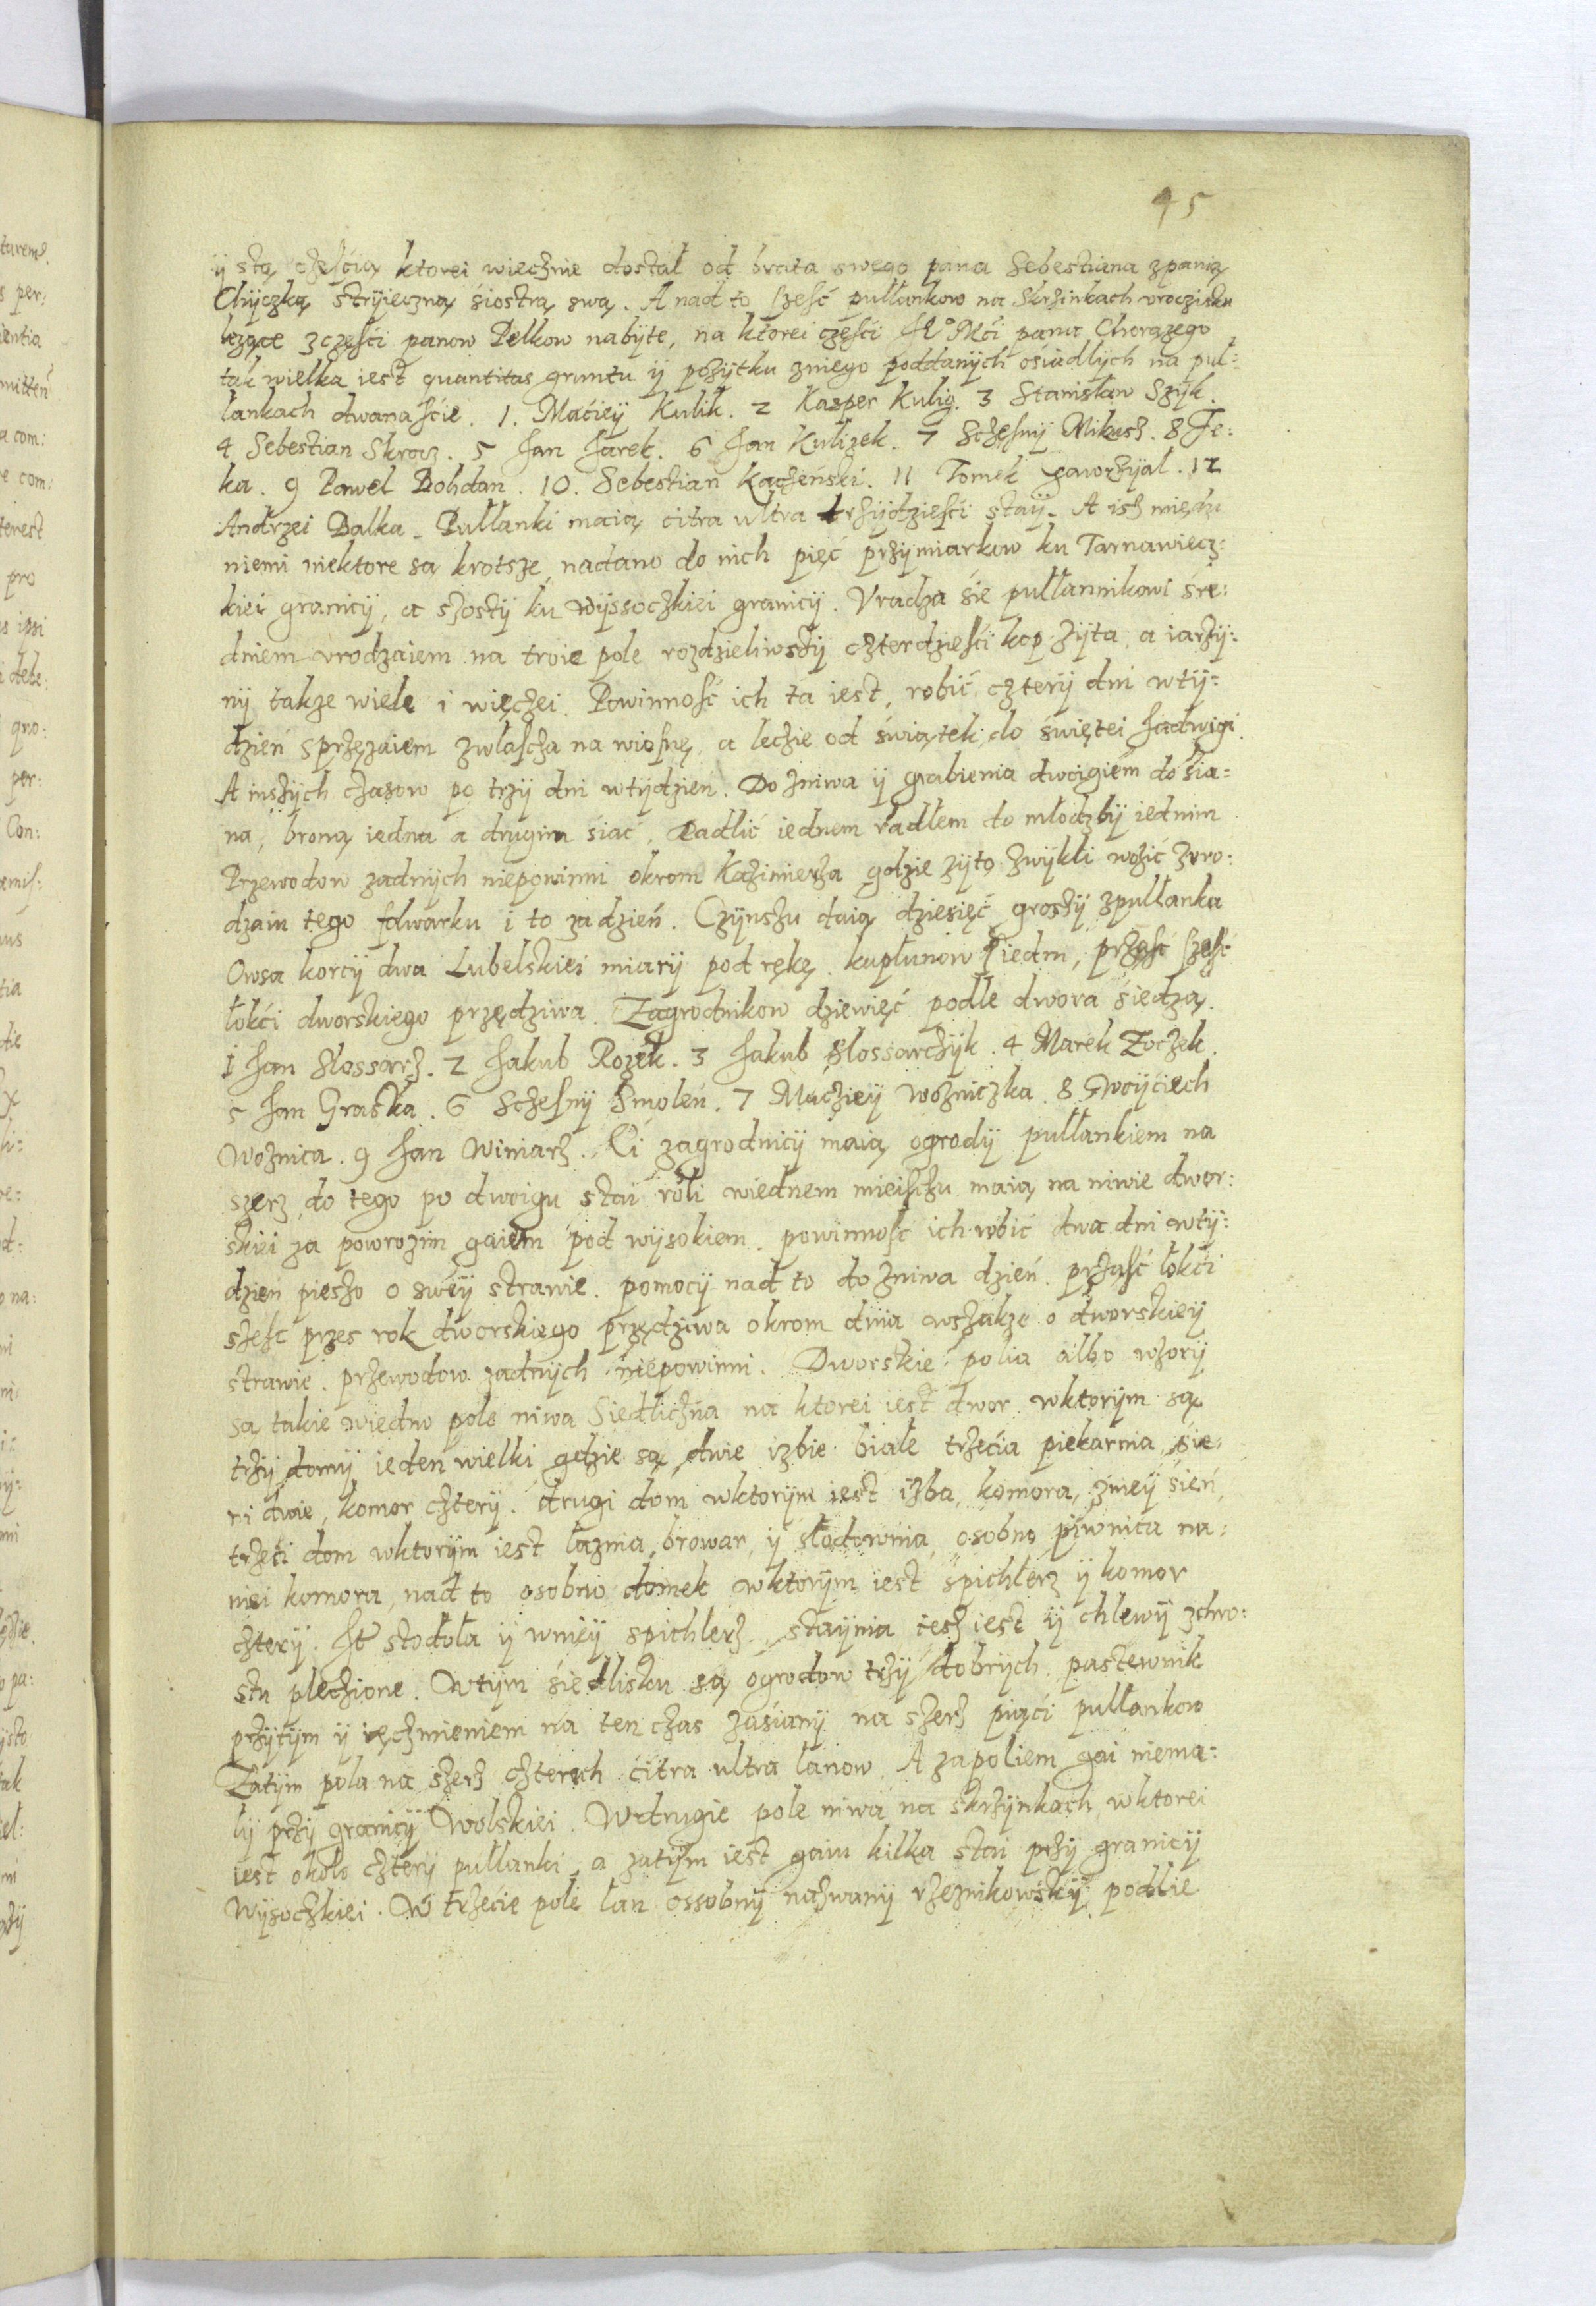 45
ij stą cżęścią ktorei wiecżnie dostał od brata swego pana Sebestiana zpanią
Chijczką strijieczną siostrą swą. A nad to sześć pułłankow na Skrżinkach vroczisku
lezące zczęści panow Pełkow nabijte, na ktorei częsci Jeº Mći pana Chorązego
tak wielka iest quantitas gruntu ij pożijtku zniego poddanijch osiadlijch na puł:
łankach dwanascie. 1. Maciej Kulik. 2 Kasper Kulig. 3 Stanisław Szijk.
4 Sebestian Skraz. 5 Jan Jarek. 6 Jan Kulizek. 7 Sczęsnij Mikusz. 8 Fe:
ka. 9 Paweł Bohdan. 10. Sebestian Kączeński. 11 Tomek Gaworżijał. 12
Andrzei Balka. Pułłanki maią citra ultra trżijdziesci staij. A isz międzi
niemi niektore sa krotsze, nadano do nich pięć przijmiarkow ku Tarnawiecz:
kiei granicij, a szostij ku Wijssoczkiei granicij. Vradza sie pułłannikowi sre:
dniem vrodzaiem na troie pole rozdzieliwszij czterdziesci kop żijta, a iarżij:
nij takze wiele i więczei. Powinność ich ta iest, robić czterij dni wtij:
dzień sprzężaiem zwłascza na wiosnę, a leczie od świątek do świętei Jadwigi.
A inszijch czasow po trzij dni wtijdzien. Do żniwa ij grabienia dwoigiem do sia:
na, broną iedna a drugim siać. Radlić iednem radłem do młodzbij iednim
Przewodow zadnijch niepowinni okrom Kazimierza gdzie zijto zwijkli wozić zvro:
dzaiu tego fdwarku i to za dzień. Czijnszu daią dziesięć groszij zpułłanka
Owsa korcij dwa Lubelskiei miarij pod rękę. kapłunow siedm, prżęść szesc
łokci dworskiego przędziwa. Zagrodnikow dziewięć podle dwora siedzą.
1 Jan Slossarz. 2 Jakub Rozek. 3 Jakub Slossarczijk. 4 Marek Zoczek.
5 Jan Graska. 6 Sczesnij Smoleń. 7 Macziej Wozniczka. 8 Woijciech
Woznica. 9 Jan Winiarz. Ci zagrodnicij maią ogrodij pułłankiem na
szerz, do tego po dwoigu stai roli wiednem mieisczu maią na niwie dwor:
skiei za powroznim gaiem pod wijsokiem. powinność ich robić dwa dni wtij:
dzień pieszo o sweij strawie. pomocij nad to do zniwa dzień. prżąść łokci
szesc przes rok dworskiego przędziwa okrom dnia wszakze o dworskieij
strawie. przewodow zadnijch niepowinni. Dworskie polia albo vzorij
sa takie wiedno pole niwa Siedlicżna na ktorei iest dwor wktorijm są
trżij domij ieden wielki gdzie są dwie izbie białe trżecia piekarnia, sie:
ni dwie, komor czterij. drugi dom wktorijm iest izba, komora, znieij sień,
trżeci dom wktorijm iest łaznia, browar, ij słodownia, osobno piwnica na:
niei komora, nad to osobno domek wktorijm iest spichlerz ij komor
czterij. Jt stodoła ij wnieij spichlerz, staijnia tesz iest ij chlewij zchro:
stu pleczione. Wtijm siedlisku są ogrodow trżij dobrijch. pastewnik
prżijtijm ij ięczmieniem na ten czas zasianij na szerz piąci pułłankow
Zatijm pola na szerz czterech citra ultra łanow. A zapoliem gai niema:
lij prżij granicij Wolskiei. Wdrugie pole niwa na skrżijnkach, wktorei
iest około czterij pułłanki, a zatijm iest gaiu kilka stai prżij granicij
Wijsoczkiei. W trżecie pole łan ossobnij nazwanij rżeznikowskij podlie